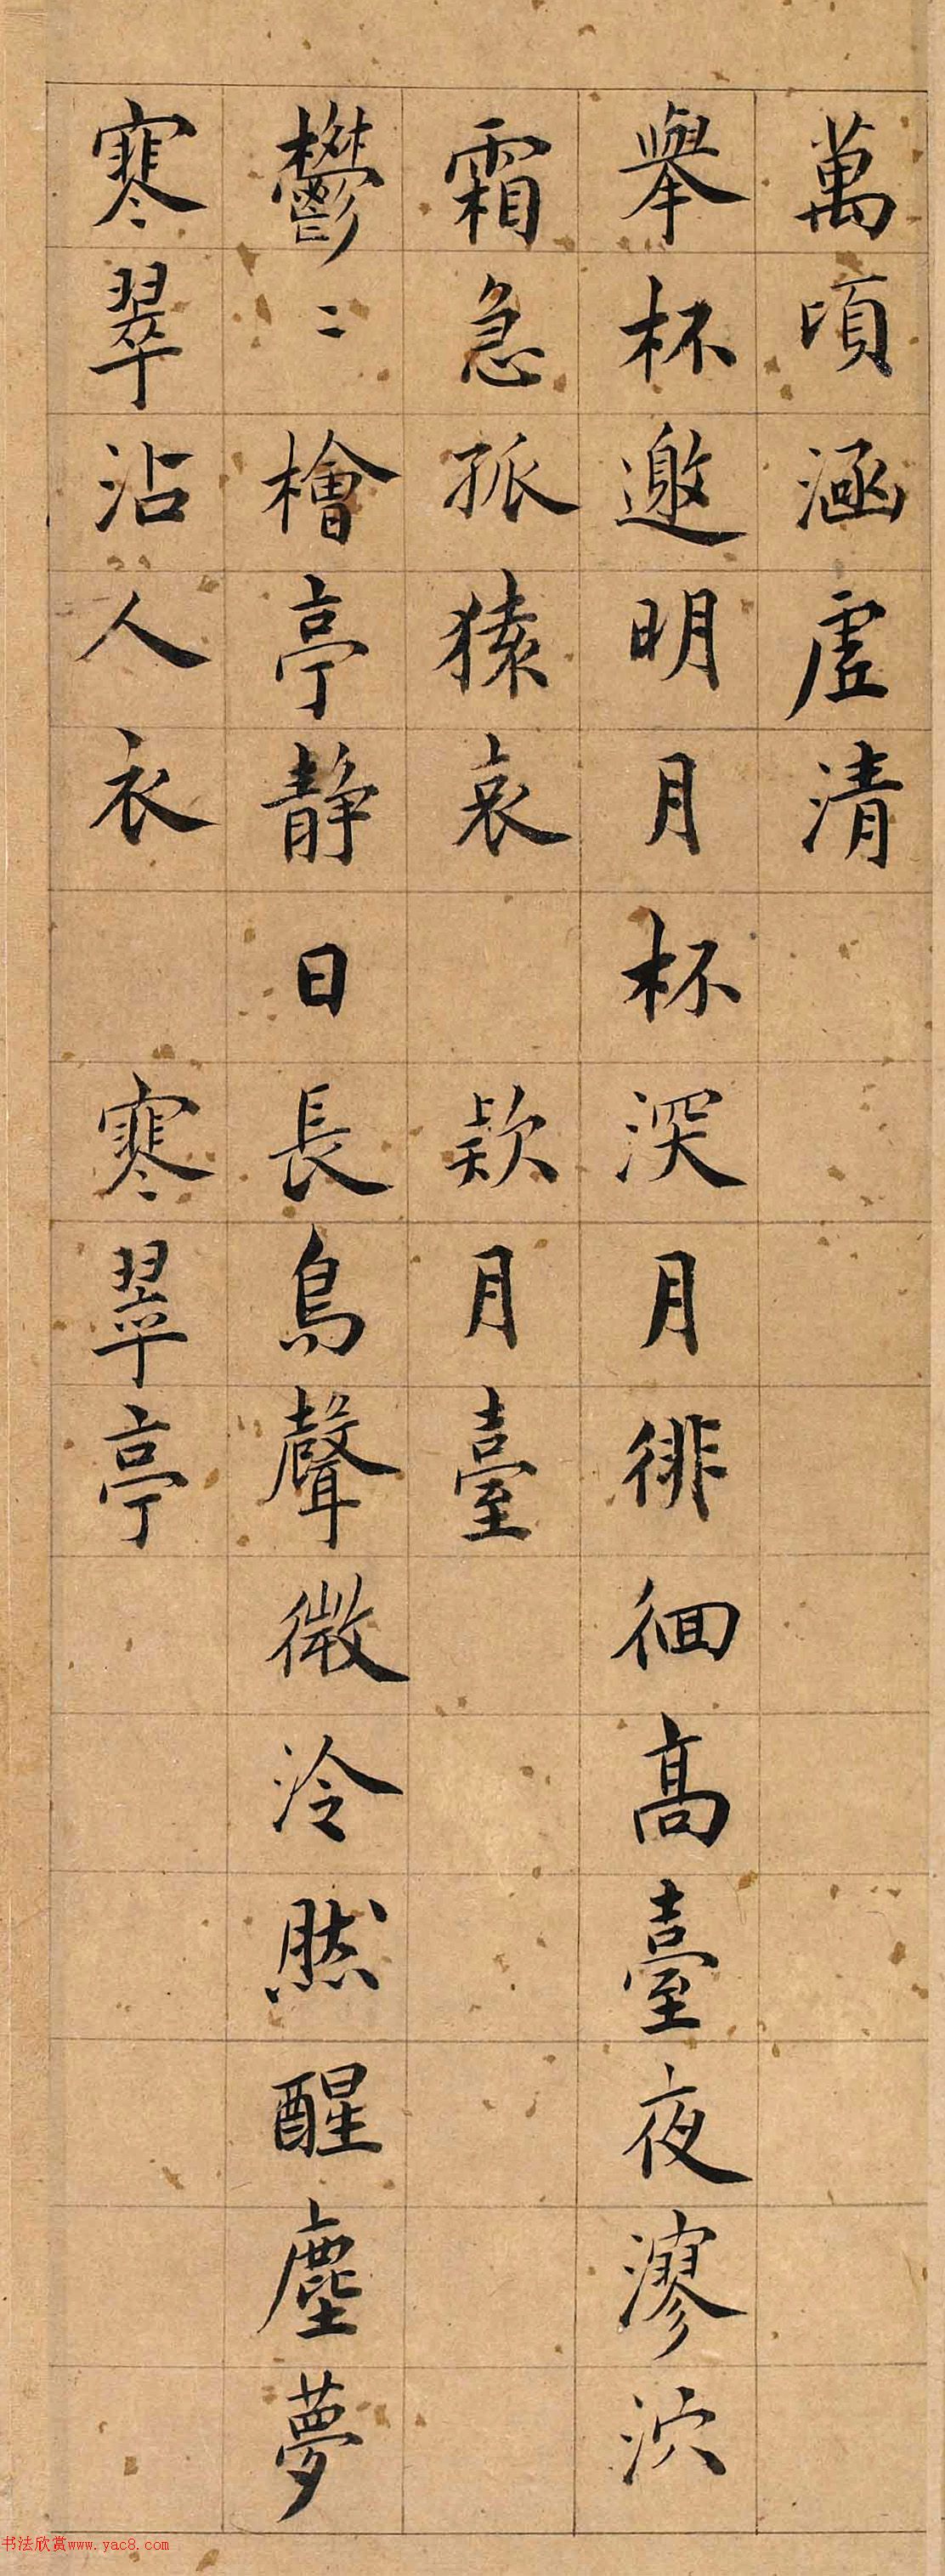 萬頃涵虛清
舉杯邀明月杯深月徘徊高臺夜漻泬
霜急孤猿哀 款月臺
鬱〻檜亭静日長鳥聲微泠然醒塵夢
寒翠沾人衣 寒翠亭
书法欣赏www.yac8.com